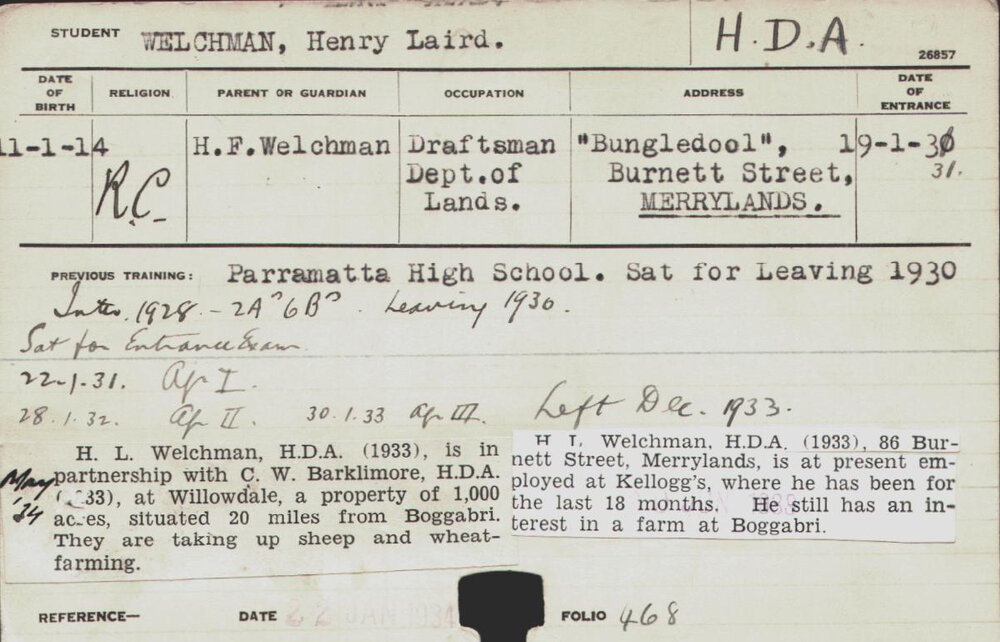 STUDENT WELCHMAN, Henry Laird. H.D.A. 26857
DATE OF BIRTH RELIGION PARENT OR GUARDIAN OCCUPATION ADDRESS DATE OF ENTRANCE
11-1-14 H.F.Welchman Draftsman "Bungledool", 19-1-30
R.C. Dept.of Burnett Street, 31.
Lands. MERRYLANDS.
PREVIOUS TRAINING: Parramatta High School. Sat for Leaving 1930
Inter. 1928. - 2A's 6B's. Leaving 1930.
Sat for Entrance Exam
22-1-31. Ag I.
28.1.32. Ag II. 30.1.33 Ag III. Left Dec. 1933.
May '34
H. L. Welchman, H.D.A. (1933), is in
partnership with C. W. Barklimore, H.D.A.
(1933), at Willowdale, a property of 1,000
acres, situated 20 miles from Boggabri.
They are taking up sheep and wheat-
farming.
H. L. Welchman, H.D.A. (1933), 86 Bur-
nett Street, Merrylands, is at present em-
ployed at Kellogg's, where he has been for
the last 18 months. He still has an in-
terest in a farm at Boggabri.
REFERENCE— DATE 22 JAN 1934 FOLIO 468